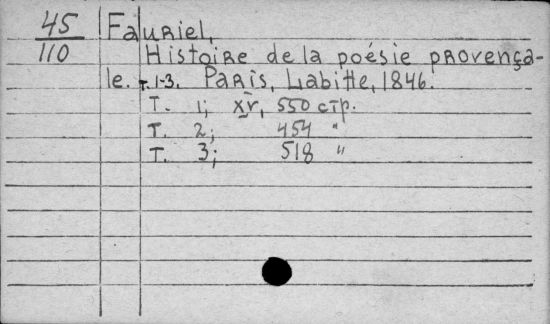 45
110
Fauriel,
Histoire de la poésie provença-
le. T. 1-3. Paris, Labitte, 1846.
T. 1; XV, 550 стр.
T. 2; 454 "
T. 3; 518 "